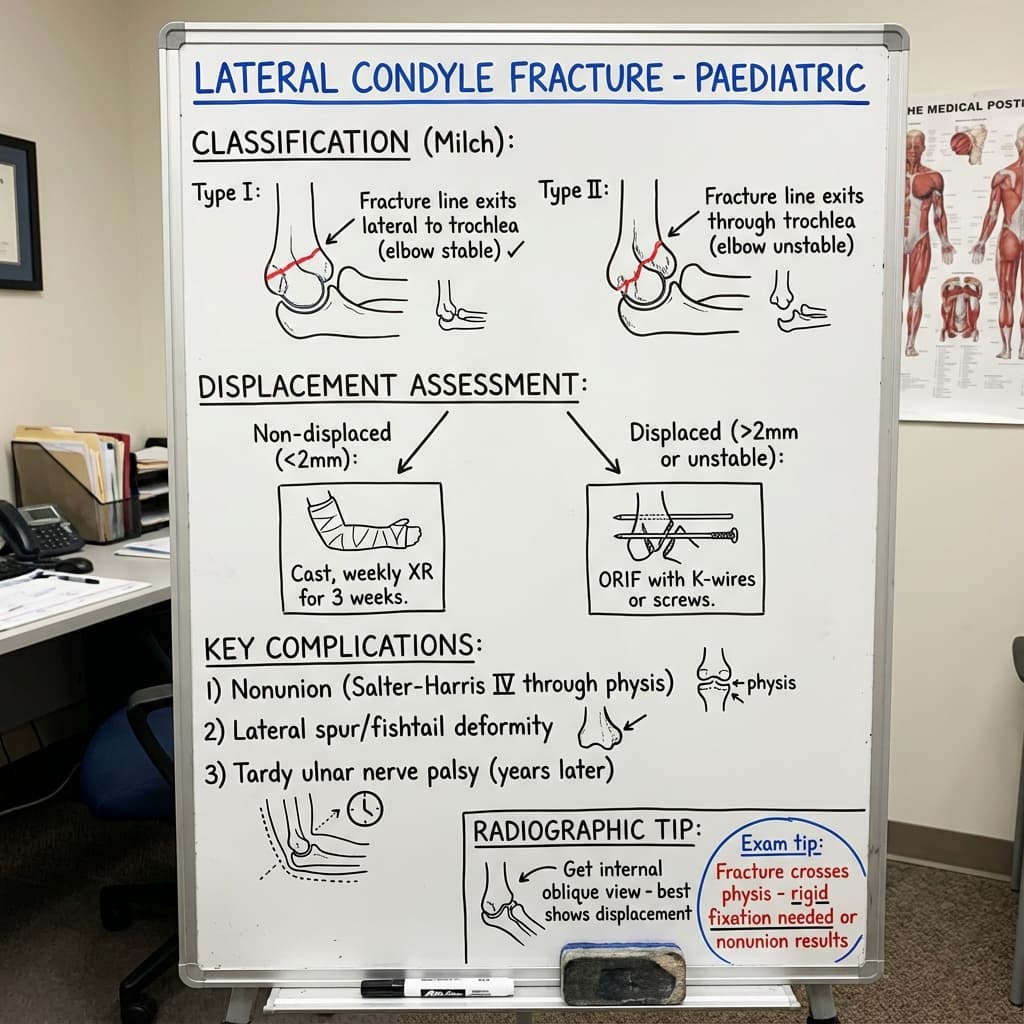 LATERAL CONDYLE FRACTURE - PAEDIATRIC
CLASSIFICATION (Milch):
Type I:
Fracture line exits
lateral to trochlea
(elbow stable) ✓
Type II:
Fracture line exits
through trochlea
(elbow unstable)
DISPLACEMENT ASSESSMENT:
Non-displaced
(<2mm):
Cast, weekly XR
for 3 weeks.
Displaced (>2mm
or unstable):
ORIF with K-wires
or screws.
KEY COMPLICATIONS:
1) Nonunion (Salter-Harris IV through physis)
physis
2) Lateral spur/fishtail deformity
3) Tardy ulnar nerve palsy (years later)
RADIOGRAPHIC TIP:
Get internal
oblique view - best
shows displacement
Exam tip:
Fracture crosses
physis - rigid
fixation needed or
nonunion results
HE MEDICAL POSTE